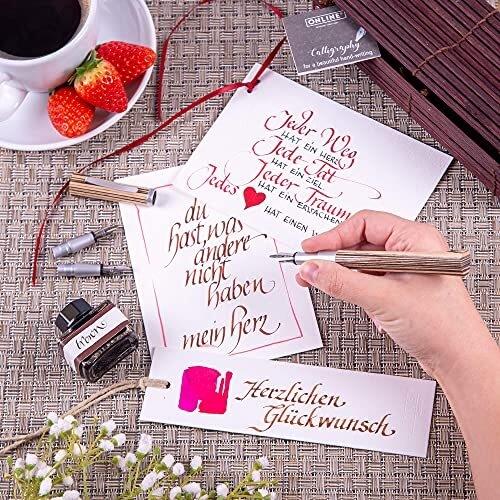 ONLINE
Calligraphy
for a beautiful hand-writing
Jeder Weg
HAT EIN HERZ
Jede Tat
HAT EIN ZIEL
Jeder Traum
HAT EIN ERWACHEN
Jedes
HAT EINEN
du
hast, was
andere
nicht
haben
mein herz
Herzlichen
Glückwunsch